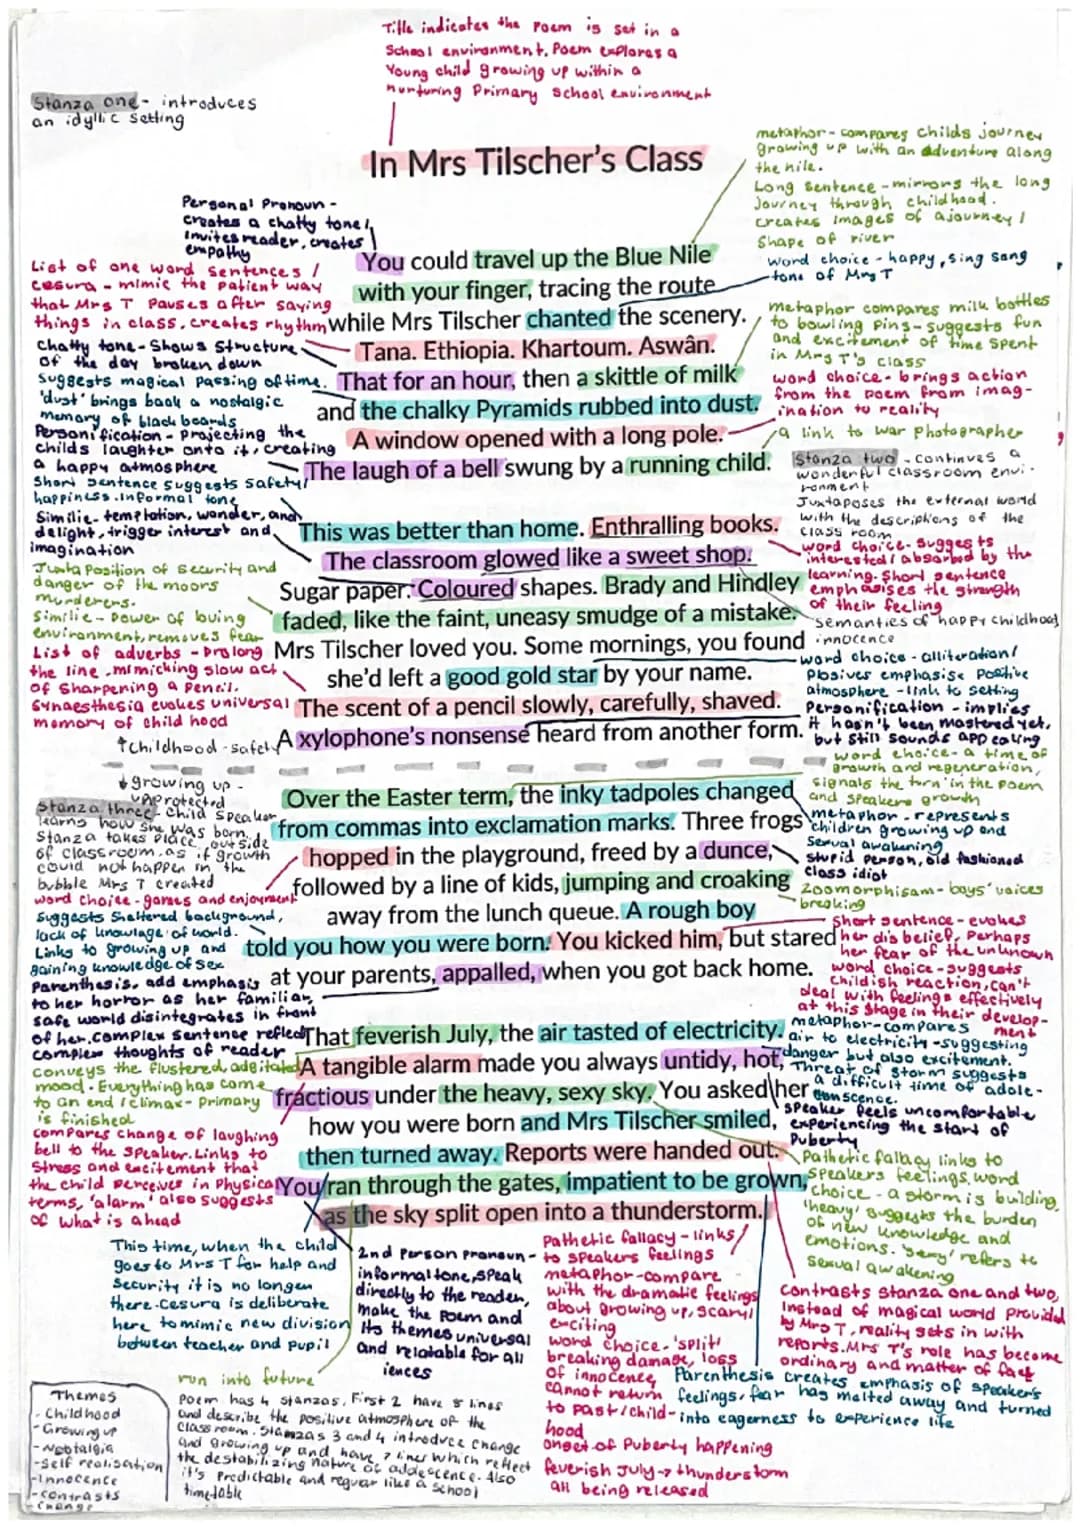 Title indicates the poem is set in a
School environment. Poem explores a
Young child growing up within a
nurturing Primary School environment
Stanza one - introduces
an idyllic setting
In Mrs Tilscher's Class
metaphor - compares childs journey
growing up with an adventure along
the nile.
Long sentence - mirrors the long
journey through childhood.
creates images of a journey /
Shape of river
word choice - happy, sing song
tone of Mrs T
Personal Pronoun -
creates a chatty tone,
invites reader, creates
empathy
List of one word sentences /
cesura - mimic the patient way
that Mrs T pauses after saying
things in class. creates rhythm
Chatty tone - Shows Structure
of the day broken down
Suggests magical passing of time.
'dust' brings back a nostalgic
memory of black boards
Personification - Projecting the
childs laughter onto it, creating
a happy atmosphere
You could travel up the Blue Nile
with your finger, tracing the route
while Mrs Tilscher chanted the scenery.
Tana. Ethiopia. Khartoum. Aswân.
That for an hour, then a skittle of milk
and the chalky Pyramids rubbed into dust.
A window opened with a long pole.
The laugh of a bell swung by a running child.
metaphor compares milk bottles
to bowling pins - suggests fun
and excitement of time spent
in Mrs T's class
word choice - brings action
from the poem from imag-
ination to reality
a link to war photographer
Stanza two - continues a
wonderful classroom envi-
ronment
Juxtaposes the external world
with the descriptions of the
class room
Short sentence suggests safety/
happiness. informal tone
Similie - temptation, wonder, and
delight, trigger interest and
imagination
Juxta position of security and
danger of the moors
murderers.
Similie - power of loving
environment, removes fear
List of adverbs - prolong
the line. mimicking slow act
of sharpening a pencil.
Synaesthesia evokes universal
memory of child hood
This was better than home. Enthralling books.
The classroom glowed like a sweet shop.
Sugar paper. Coloured shapes. Brady and Hindley
faded, like the faint, uneasy smudge of a mistake.
Mrs Tilscher loved you. Some mornings, you found
she'd left a good gold star by your name.
The scent of a pencil slowly, carefully, shaved.
A xylophone's nonsense heard from another form.
word choice - suggests
interested / absorbed by the
learning. Short sentence
emphasises the strength
of their feeling
semantics of happy childhood
innocence
word choice - alliteration /
plosives emphasise Positive
atmosphere - link to setting
Personification - implies
it hasn't been mastered yet,
but still sounds appealing
↑ Childhood - safety
↓ growing up -
unprotected
word choice - a time of
growth and regeneration,
signals the 'turn' in the poem
and speakers growth
Stanza three - Child speaker
learns how she was born.
Stanza takes place outside
of classroom. as if growth
could not happen in the
bubble Mrs T created
word choice - games and enjoyment
Suggests sheltered background,
lack of knowlage of world.
Links to growing up and
gaining knowledge of sex
Parenthesis. add emphasis
to her horror as her familiar,
safe world disintegrates in front
of her. complex sentence reflect
complex thoughts of reader
Over the Easter term, the inky tadpoles changed
from commas into exclamation marks. Three frogs
hopped in the playground, freed by a dunce,
followed by a line of kids, jumping and croaking
away from the lunch queue. A rough boy
told you how you were born. You kicked him, but stared
at your parents, appalled, when you got back home.
metaphor - represents
children growing up and
Sexual awakening
stupid person, old fashioned
class idiot
Zoomorphisam - boys' voices
breaking
Short sentence - evokes
her disbelief, Perhaps
her fear of the unknown
word choice - suggests
childish reaction, can't
deal with feelings effectively
at this stage in their develop-
ment
conveys the flustered, adgitated
mood. Everything has come
to an end / climax - primary
is finished
compares change of laughing
bell to the speaker. Links to
stress and excitement that
the child perceives in Physical
terms, 'alarm' also suggests
of what is ahead
That feverish July, the air tasted of electricity.
A tangible alarm made you always untidy, hot,
fractious under the heavy, sexy sky. You asked her
how you were born and Mrs Tilscher smiled,
then turned away. Reports were handed out.
You ran through the gates, impatient to be grown,
as the sky split open into a thunderstorm.
metaphor - compares
air to electricity - suggesting
danger but also excitement.
Threat of storm suggests
a difficult time of adole-
conscence.
Speaker feels uncomfortable
experiencing the start of
Puberty
Pathetic fallacy links to
speakers feelings, word
choice - a storm is building,
'heavy' suggests the burden
of new knowledge and
emotions. 'sexy' refers to
sexual awakening
contrasts stanza one and two,
instead of magical world provided
by Mrs T, reality sets in with
reports. Mrs T's role has become
ordinary and matter of fact
This time, when the child
goes to Mrs T for help and
security it is no longer
there. Cesura is deliberate
here to mimic new division
between teacher and pupil
2nd Person pronoun -
informal tone, speak
directly to the reader,
make the poem and
its themes universal
and relatable for all
iences
Pathetic fallacy - links
to speakers feelings
metaphor - compare
with the dramatic feelings
about growing up, scary/
exciting
word choice. 'split'
breaking damage, loss
of innocence
cannot return
to past / child-
hood
onset of Puberty happening
feverish July → thunderstorm
all being released
Parenthesis creates emphasis of speaker's
feelings. fear has melted away and turned
into eagerness to experience life
run into future
Poem has 4 stanzas. First 2 have 8 lines
and describe the positive atmosphere of the
classroom. Stanzas 3 and 4 introduce change
and growing up and have 7 lines which reflect
the destabilizing nature of adolescence. Also
it's predictable and reguar like a school
timetable
Themes
- Childhood
- Growing up
- Nostalgia
- Self realisation
- Innocence
- contrasts
- change